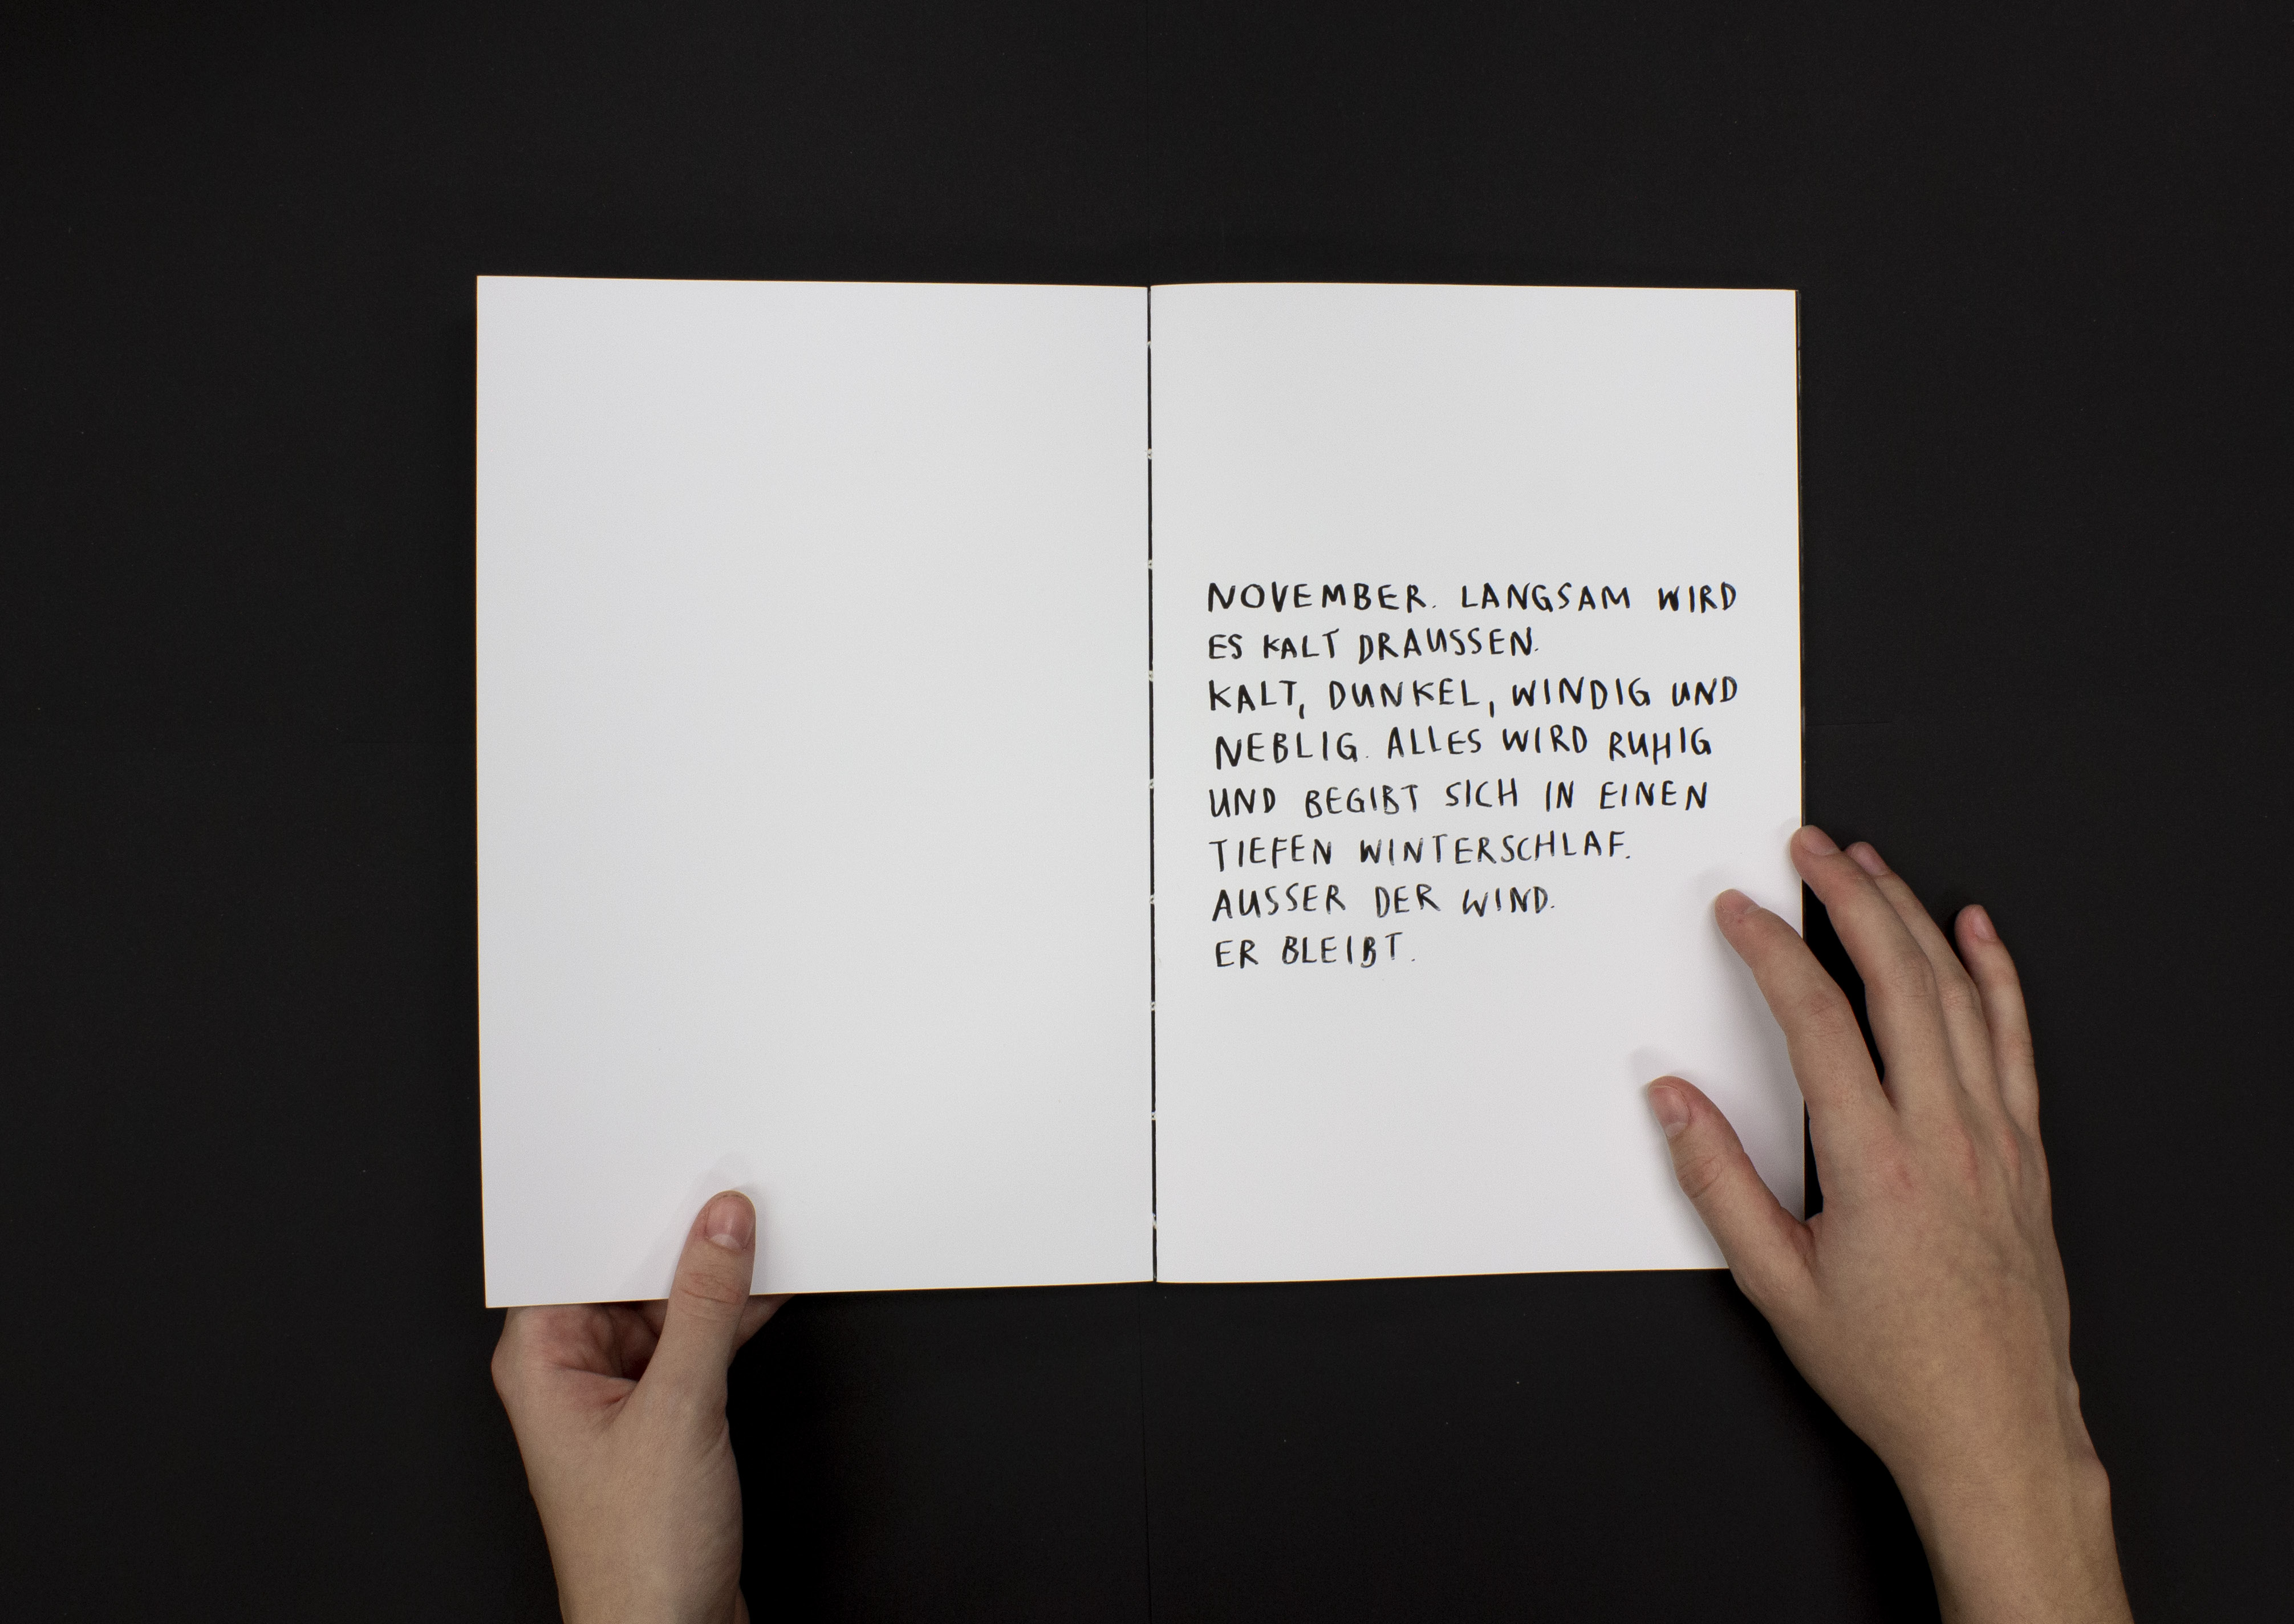 NOVEMBER. LANGSAM WIRD
ES KALT DRAUSSEN.
KALT, DUNKEL, WINDIG UND
NEBLIG. ALLES WIRD RUHIG
UND BEGIBT SICH IN EINEN
TIEFEN WINTERSCHLAF.
AUSSER DER WIND.
ER BLEIBT.